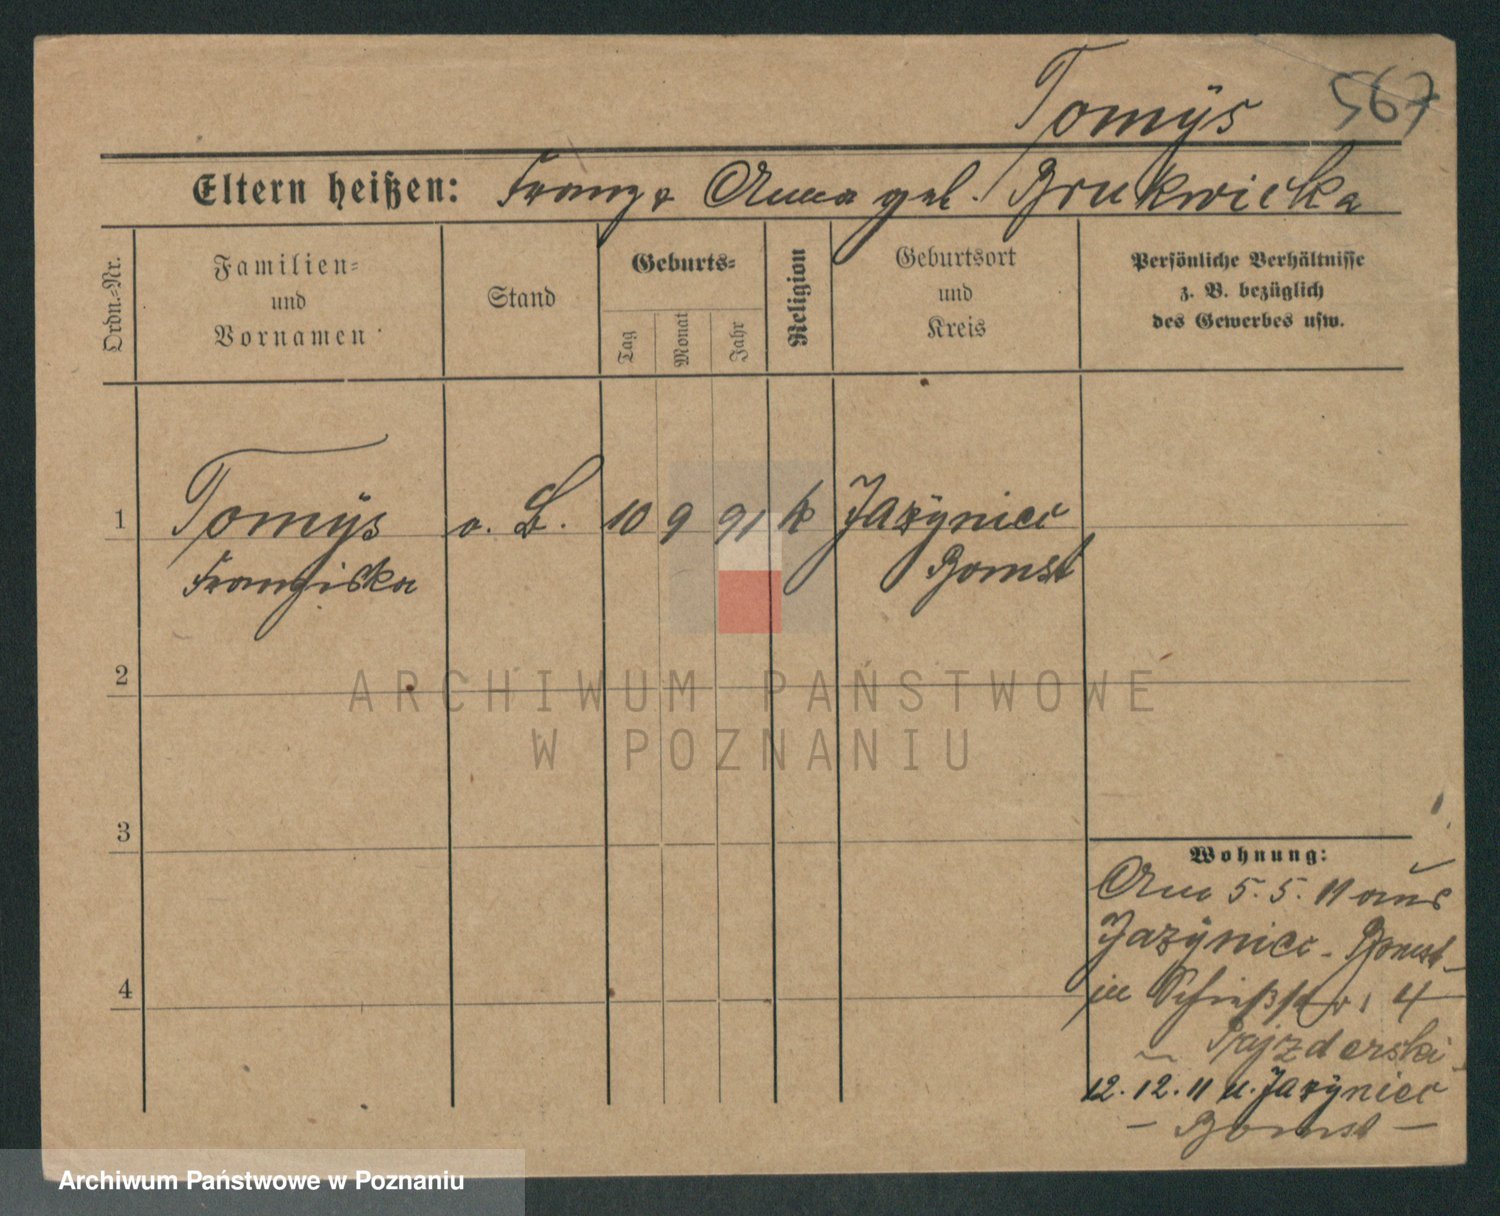 Tomÿs
567
Eltern heißen: Franz & Anna geb. Brukwicka
Ordn.=Nr.
Familien=
und
Vornamen
Stand
Geburts=
Tag
Monat
Jahr
Religion
Geburtsort
und
Kreis
Persönliche Verhältnisse
z. B. bezüglich
des Gewerbes usw.
1 Tomÿs o. B. 10 9 91 k Jazÿniec
Franziska Bomst
2
ARCHIWUM PAŃSTWOWE
W POZNANIU
3
Wohnung:
Am 5. 5. 11 aus
Jazÿniec - Bomst -
in Schießstr. 4
Pajzderski
12. 12. 11 n. Jazÿniec
- Bomst -
4
Archiwum Państwowe w Poznaniu